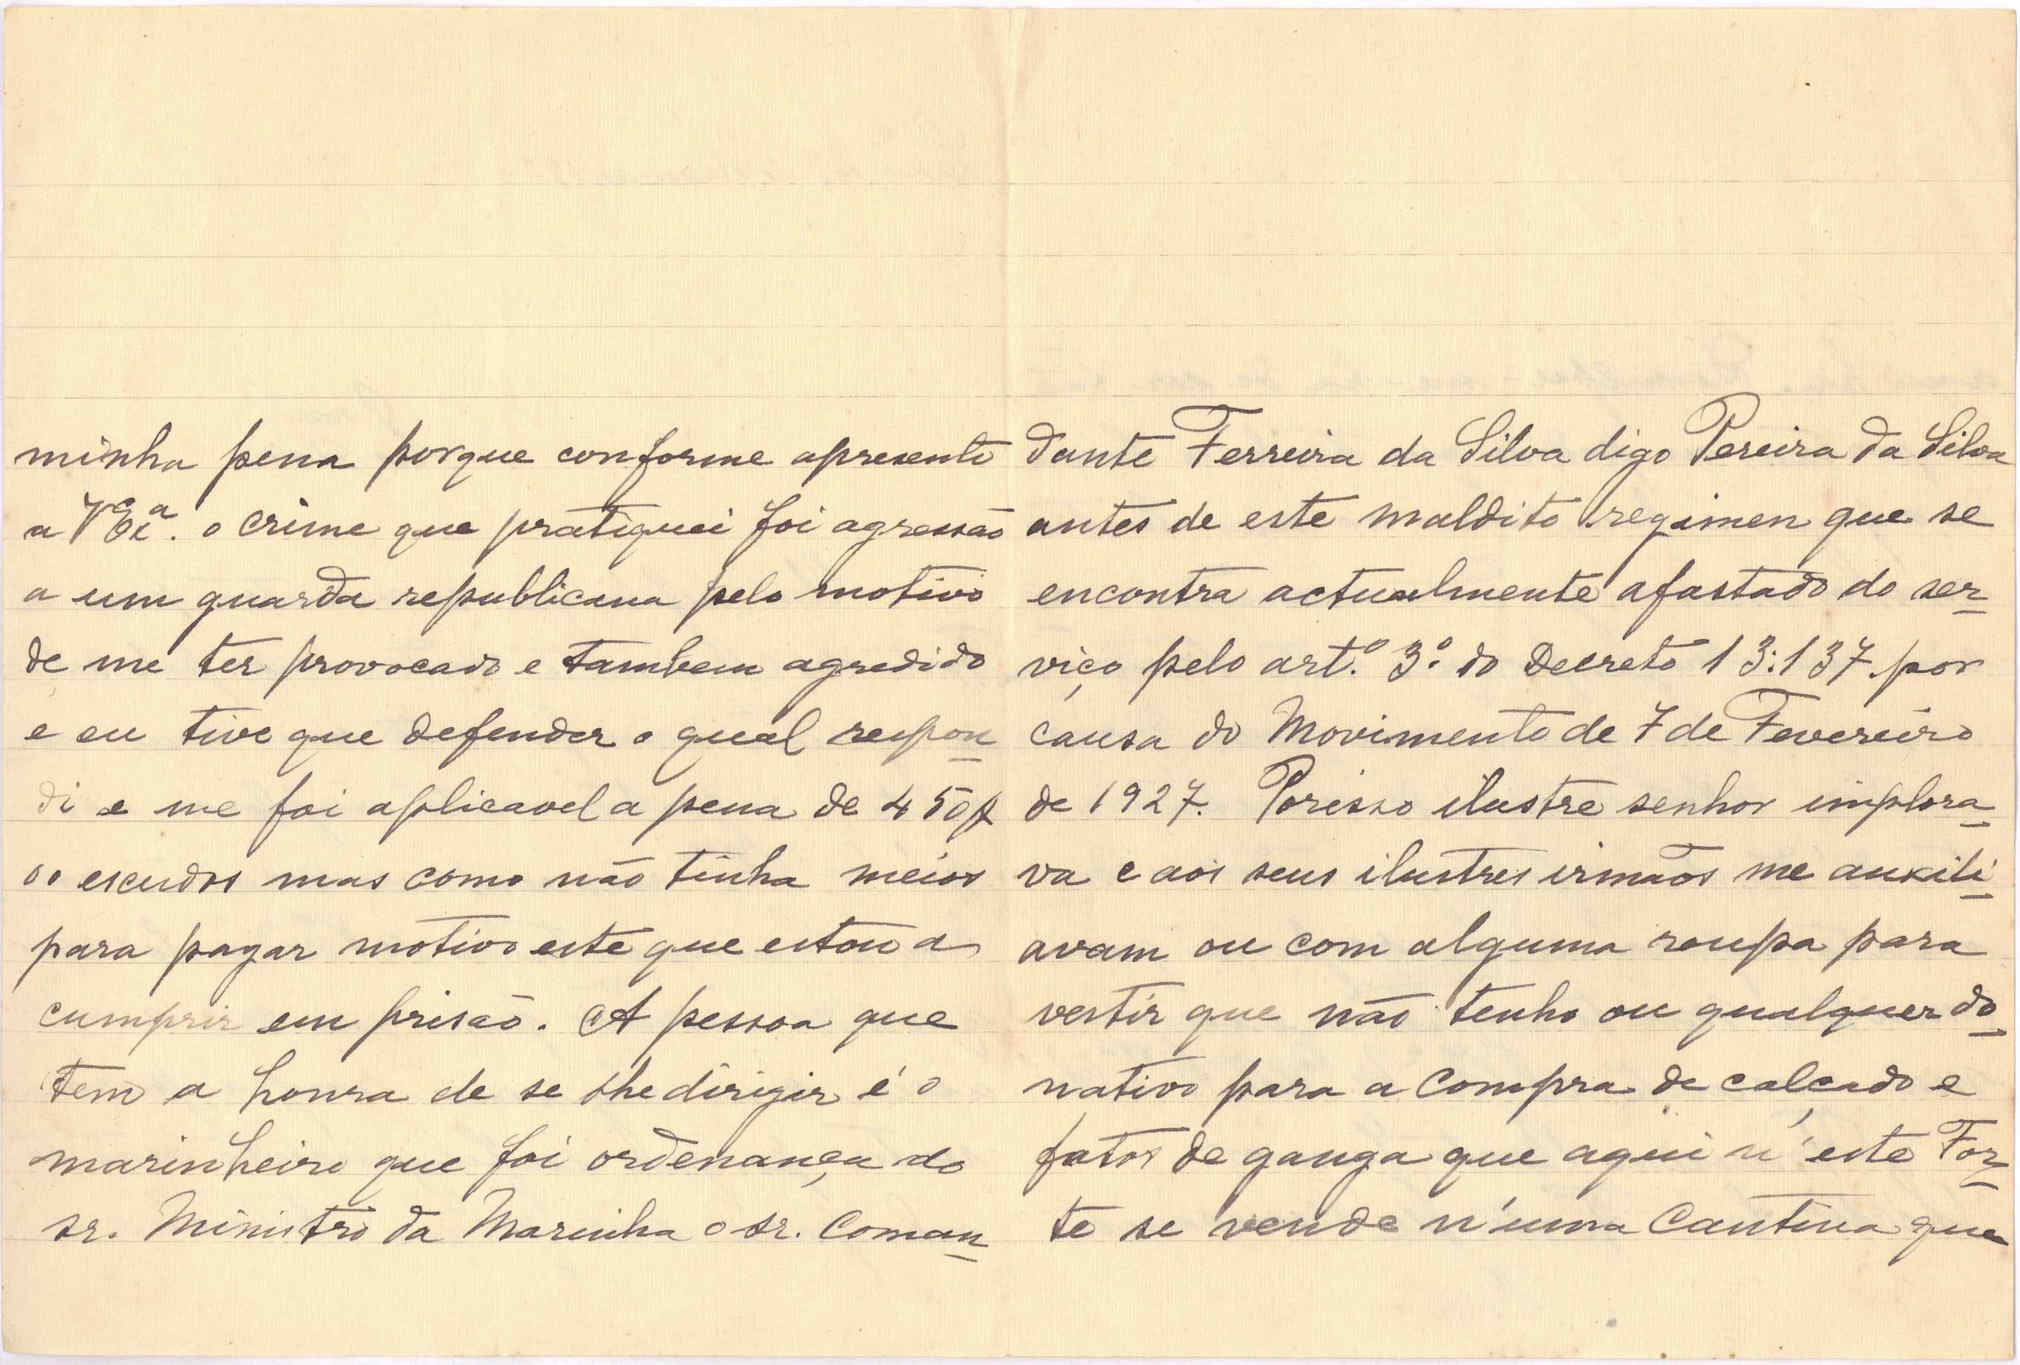 minha pena porque conforme apresento
a V Exª. o crime que pratiquei foi agressão
a um guarda republicana pelo motivo
de me ter provocado e tambem agredido
e eu tive que defender o qual respon
di e me foi aplicavel a pena de 450$
00 escudos mas como não tinha meios
para pagar motivo este que estou a
cumprir em prisão. A pessoa que
tem a honra de se lhe dirigir é o
marinheiro que foi ordenança do
sr. Ministro da Marinha o sr. Coman
dante Ferreira da Silva digo Pereira da Silva
antes de este maldito regimen que se
encontra actualmente afastado do ser
viço pelo artº. 3º. do Decreto 13:137 por
causa do Movimento de 7 de Fevereiro
de 1927. Porisso ilustre senhor implora
va e aos seus ilustres irmãos me auxili
avam ou com alguma roupa para
vestir que não tenho ou qualquer do
nativo para a compra de calçado e
fatos de ganga que aqui n'este For
te se vende n'uma Cantina que